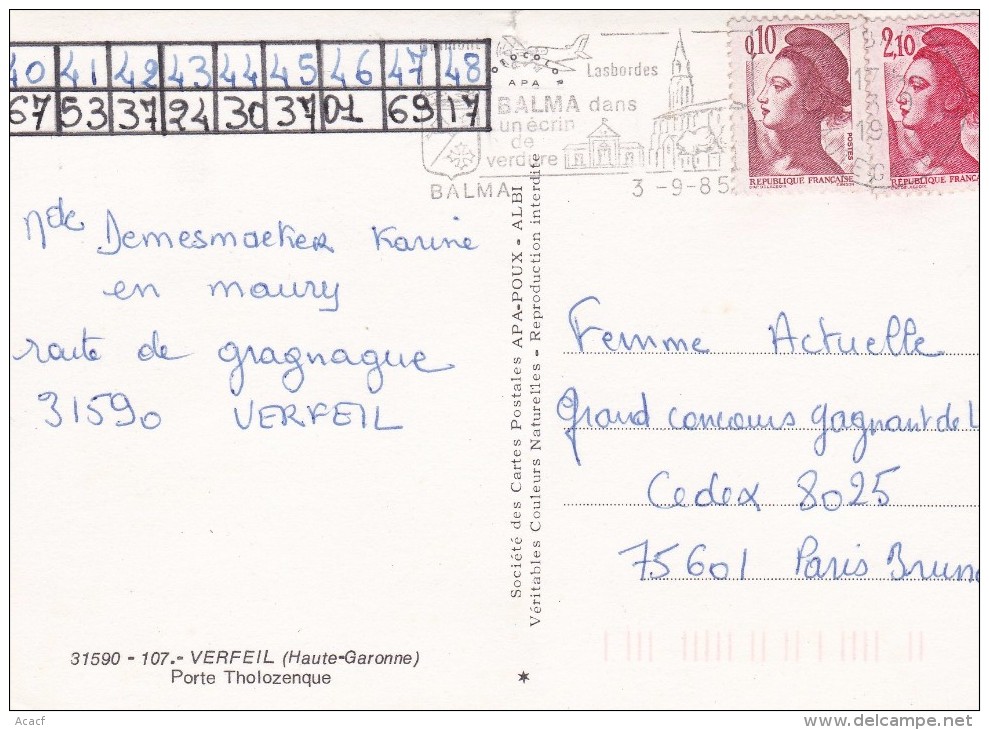 40 41 42 43 44 45 46 47 48
67 53 37 24 30 37 01 69 17
Lasbordes
APA
BALMA dans
un écrin
de
verdure
BALMA
3 -9-85
0,10
POSTES
REPUBLIQUE FRANÇAISE
2,10
REPUBLIQUE FRANÇA
17
19
Mde Demesmaeker Karine
en maury
route de gragnague
31590 VERFEIL
Société des Cartes Postales APA-POUX - ALBI
Véritables Couleurs Naturelles - Reproduction interdite
Femme Actuelle
Grand concours gagnant de L
Cedex 8025
75601 Paris Brune
31590 - 107.- VERFEIL (Haute-Garonne)
Porte Tholozenque
Acacf
www.delcampe.net